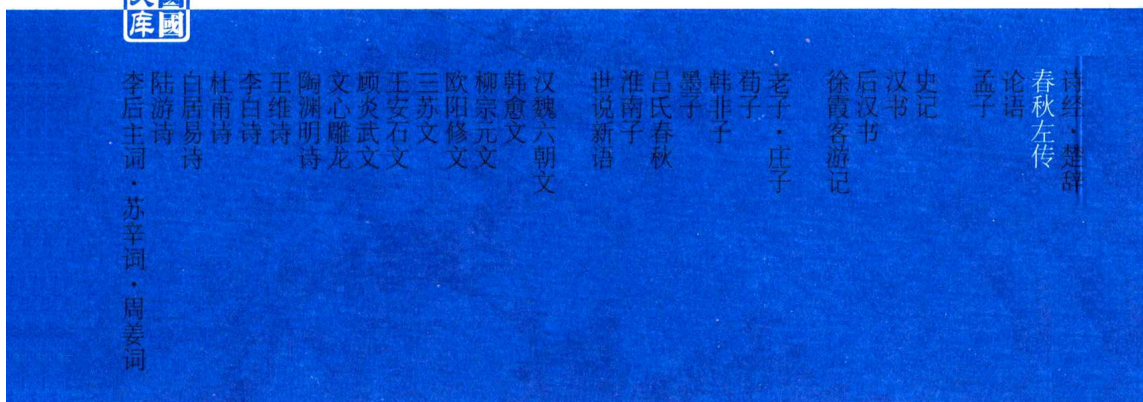 诗经·楚辞
春秋左传
论语
孟子
史记
汉书
后汉书
徐霞客游记
老子·庄子
荀子
韩非子
墨子
吕氏春秋
淮南子
世说新语
汉魏六朝文
韩愈文
柳宗元文
欧阳修文
三苏文
王安石文
顾炎武文
文心雕龙
陶渊明诗
王维诗
李白诗
杜甫诗
白居易诗
陆游诗
李后主词·苏辛词·周姜词
库國